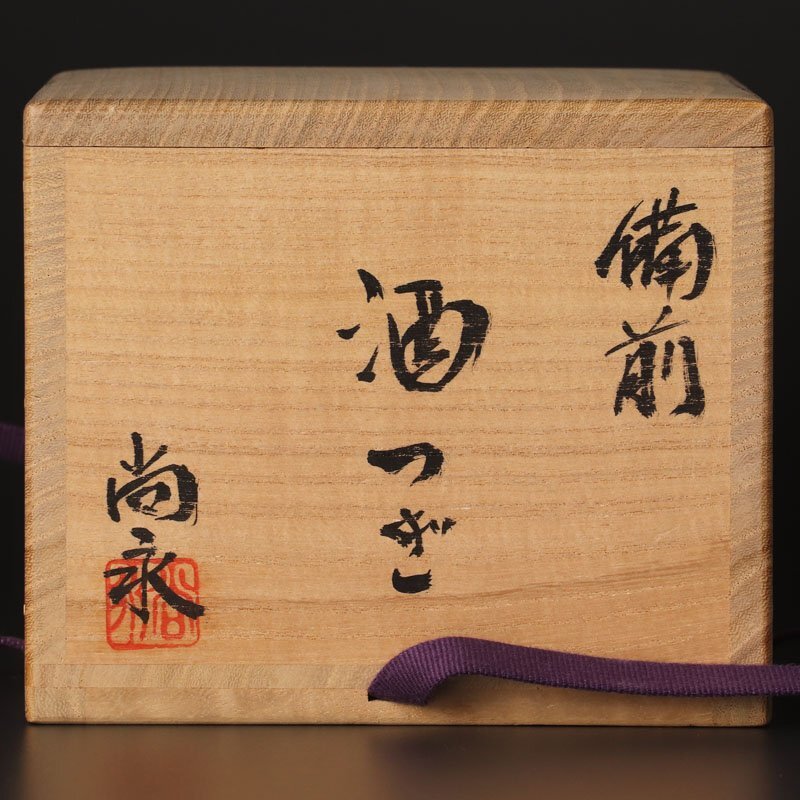 備前
酒つぎ
尚永